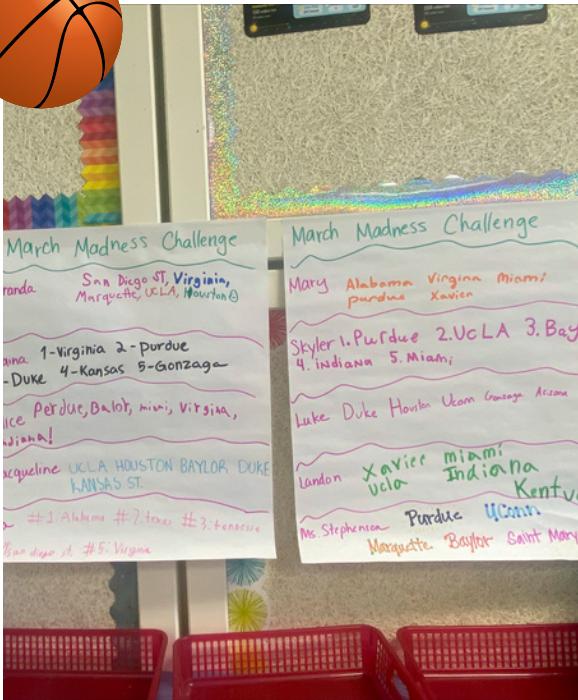 March Madness Challenge
randa San Diego ST, Virginia,
Marquette, UCLA, Houston
aina 1-Virginia 2-Purdue
-Duke 4-Kansas 5-Gonzaga
ice Perdue, Balor, mimi, Virgina,
ndiana!
acqueline UCLA HOUSTON BAYLOR DUKE
KANSAS ST.
#1: Alabama #2: texas #3: tenecsie
san diego st. #5: Virgina
March Madness Challenge
Mary Alabama Virgina Miami
purdue Xavier
Skyler 1. Purdue 2. UCLA 3. Bay
4. indiana 5. Miami
Luke Duke Houston Uconn Gonzaga Arizona
Landon Xavier miami
ucla Indiana
Kentu
Ms. Stephenson Purdue UConn
Marquette Baylor Saint Mary